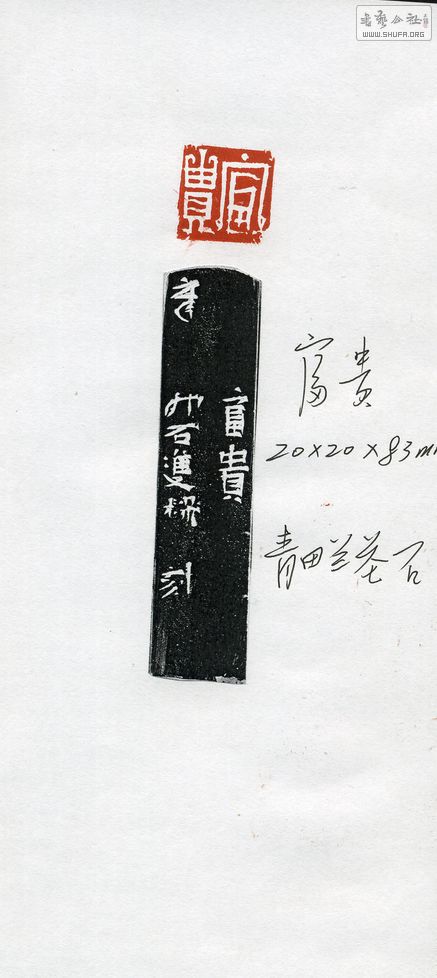 書藝公社
WWW.SHUFA.ORG
富貴
富貴
石雙
刻
富貴
20×20×83m
青田兰花石